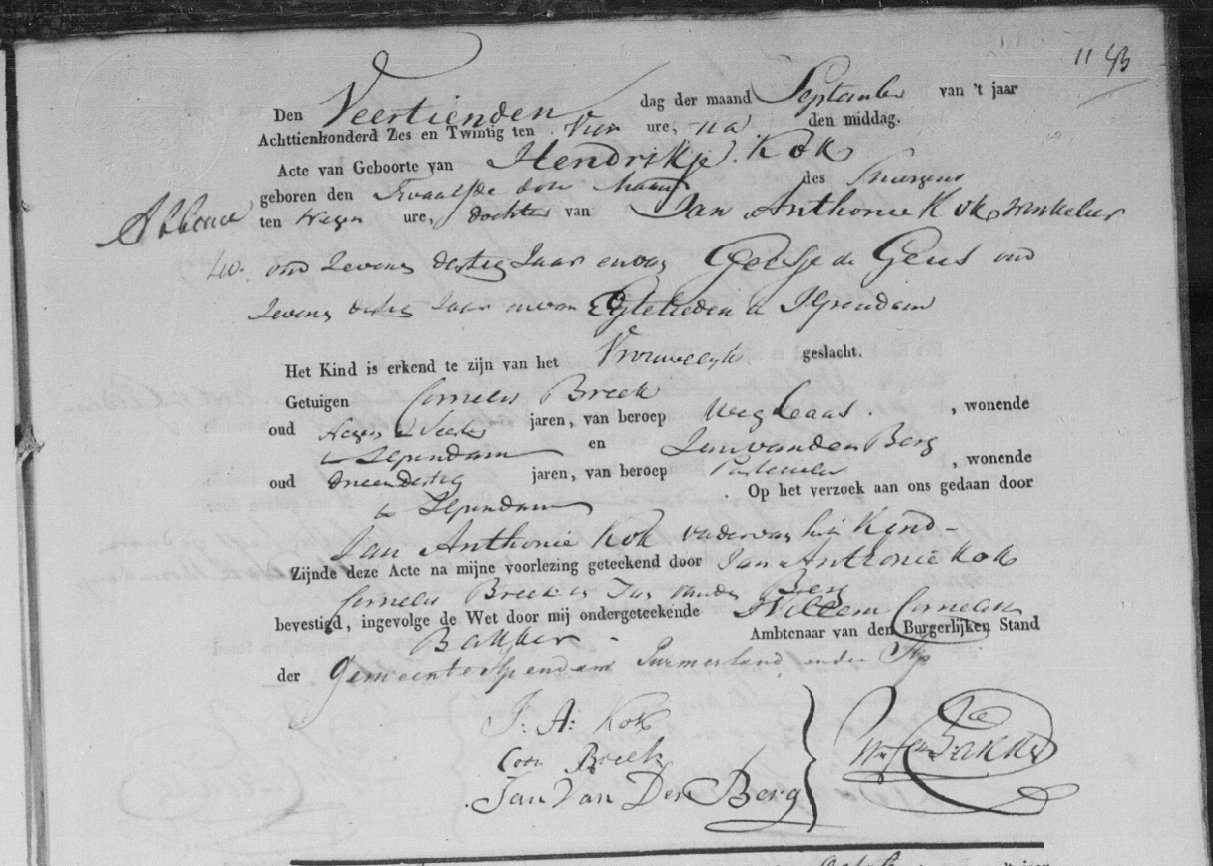 11 43
Den Veertienden dag der maand September van 't jaar
Achttienhonderd Zes en Twintig ten Vier ure, na den middag.
Acte van Geboorte van Hendrikje Kok
geboren den Twaalfde dezer Maand des smorgens
ten Negen ure, dochter van Jan Anthonie Kok winkelier
oud Zevenendertig Jaar en van Geesje de Geus oud
Zevenendertig Jaar en van Egtelieden te Ilpendam
Het Kind is erkend te zijn van het Vrouwelyk geslacht.
Getuigen Cornelis Breek
oud jaren, van beroep , wonende
te Ilpendam en Jan van den Berg
oud drieendertig jaren, van beroep , wonende
te Ilpendam Op het verzoek aan ons gedaan door
Jan Anthonie Kok vader van het Kend
Zijnde deze Acte na mijne voorlezing geteekend door Jan Anthonie Kok
Cornelis Breek en Jan van den Berg
bevestigd, ingevolge de Wet door mij ondergeteekende Willem Cornelis
Bakker Ambtenaar van den Burgerlijken Stand
der Gemeente Ilpendam Purmerland en den Ilp
J: A: Kok
Corn Breek
Jan Van Den Berg
Bakker